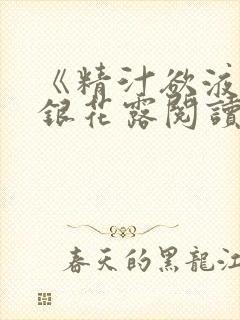 《精汁欲液
銀花露閱讀
春天的黑龍江